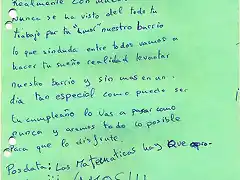 Realmente con
Nunca se ha visto del todo tu
trabajo por tu "Luna" nuestro barrio
lo que sin duda entre todos vamos a
hacer tu sueño realidad levantar
nuestro barrio y sin mas en un
dia tan especial como puede ser
tu cumpleaños lo vas a pasar como
nunca y aremos todo lo posible
para que lo disfrute.
Posdata: Las Matematicas hay que apro-